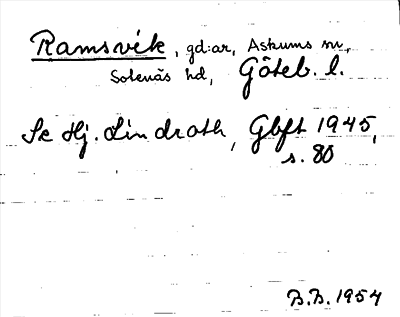 Ramsvik, gd:ar, Askums sn,
Sotenäs hd, Göteb. l.
Se Hj. Lindroth, Gbft 1945,
s. 80
B.B. 1954